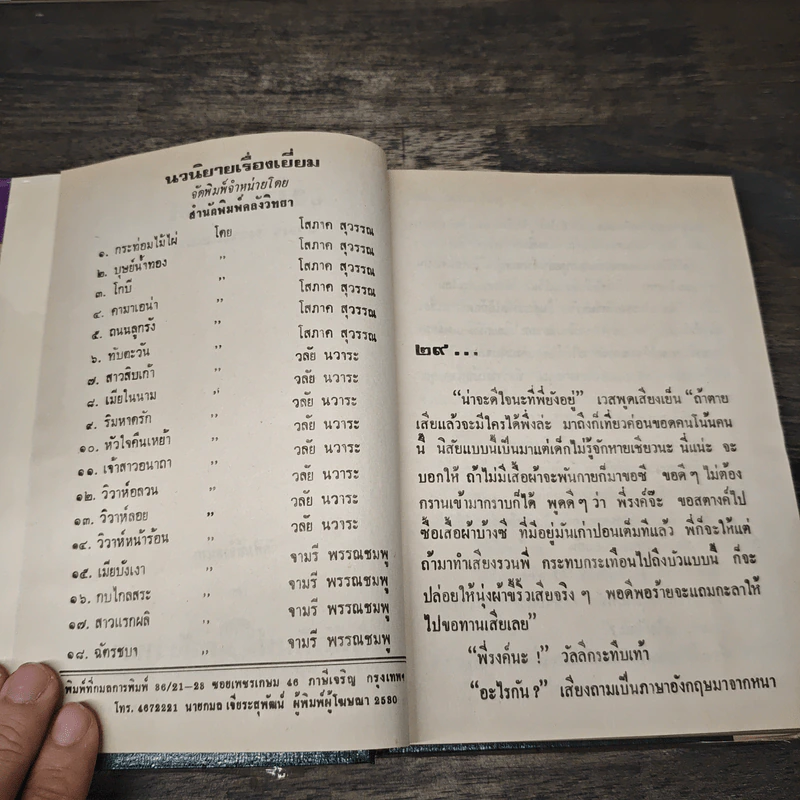 นวนิยายเรื่องเยี่ยม
จัดพิมพ์จำหน่ายโดย
สำนักพิมพ์คลังวิทยา
๑. กระท่อมไม้ไผ่ โดย โสภาค สุวรรณ
๒. บุษย์น้ำทอง ” โสภาค สุวรรณ
๓. โกบี ” โสภาค สุวรรณ
๔. คามาเอน่า ” โสภาค สุวรรณ
๕. ถนนลูกรัง ” โสภาค สุวรรณ
๖. ทับตะวัน ” วลัย นวาระ
๗. สาวสิบเก้า ” วลัย นวาระ
๘. เมียในนาม ” วลัย นวาระ
๙. ริมหาดรัก ” วลัย นวาระ
๑๐. หัวใจคืนเหย้า ” วลัย นวาระ
๑๑. เจ้าสาวอนาถา ” วลัย นวาระ
๑๒. วิวาห์อลวน ” วลัย นวาระ
๑๓. วิวาห์ลอย ” วลัย นวาระ
๑๔. วิวาห์หน้าร้อน ” จามรี พรรณชมพู
๑๕. เมียบังเงา ” จามรี พรรณชมพู
๑๖. กบไกลสระ ” จามรี พรรณชมพู
๑๗. สาวแรกผลิ ” จามรี พรรณชมพู
๑๘. ฉัตรชบา ” จามรี พรรณชมพู
พิมพ์ที่กมลการพิมพ์ 36/21-23 ซอยเพชรเกษม 46 ภาษีเจริญ กรุงเทพฯ
โทร. 4672221 นายกมล เจียระสุพัฒน์ ผู้พิมพ์ผู้โฆษณา 2530
๒๙...
“น่าจะดีใจนะที่พี่ยังอยู่” เวสพูดเสียงเย็น “ถ้าตาย
เสียแล้วจะมีใครได้พึ่งล่ะ มาถึงก็เที่ยวค่อนขอดคนโน้นคน
นี้ นิสัยแบบนี้เป็นมาแต่เด็กไม่รู้จักหายเชียวนะ นี่แน่ะ จะ
บอกให้ ถ้าไม่มีเสื้อผ้าจะพันกายก็มาขอซี ขอดี ๆ ไม่ต้อง
กรานเข้ามากราบก็ได้ พูดดี ๆ ว่า พี่รงค์จ๊ะ ขอสตางค์ไป
ซื้อเสื้อผ้าบ้างซี ที่มีอยู่มันเก่าปอนเต็มทีแล้ว พี่ก็จะให้แต่
ถ้ามาทำเสียงรวนพี่ กระทบกระเทือนไปถึงบัวแบบนี้ ก็จะ
ปล่อยให้นุ่งผ้าขี้ริ้วเสียจริง ๆ พอดีพอร้ายจะแถมกะลาให้
ไปขอทานเสียเลย”
“พี่รงค์นะ !” วัลลีกระทืบเท้า
“อะไรกัน ?” เสียงถามเป็นภาษาอังกฤษมาจากหน้า